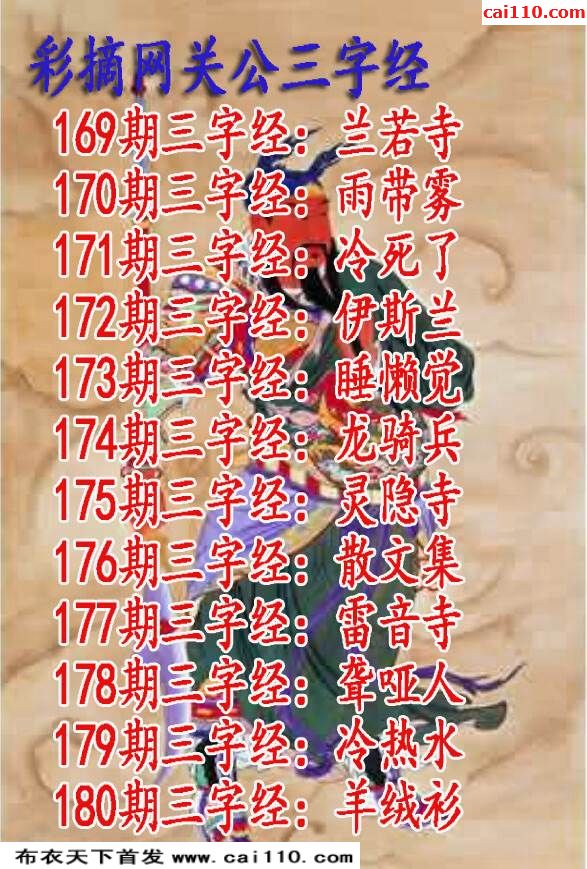 cai110.com
彩摘网关公三字经
169期三字经：兰若寺
170期三字经：雨带雾
171期三字经：冷死了
172期三字经：伊斯兰
173期三字经：睡懒觉
174期三字经：龙骑兵
175期三字经：灵隐寺
176期三字经：散文集
177期三字经：雷音寺
178期三字经：聋哑人
179期三字经：冷热水
180期三字经：羊绒衫
布衣天下首发 www.cai110.com